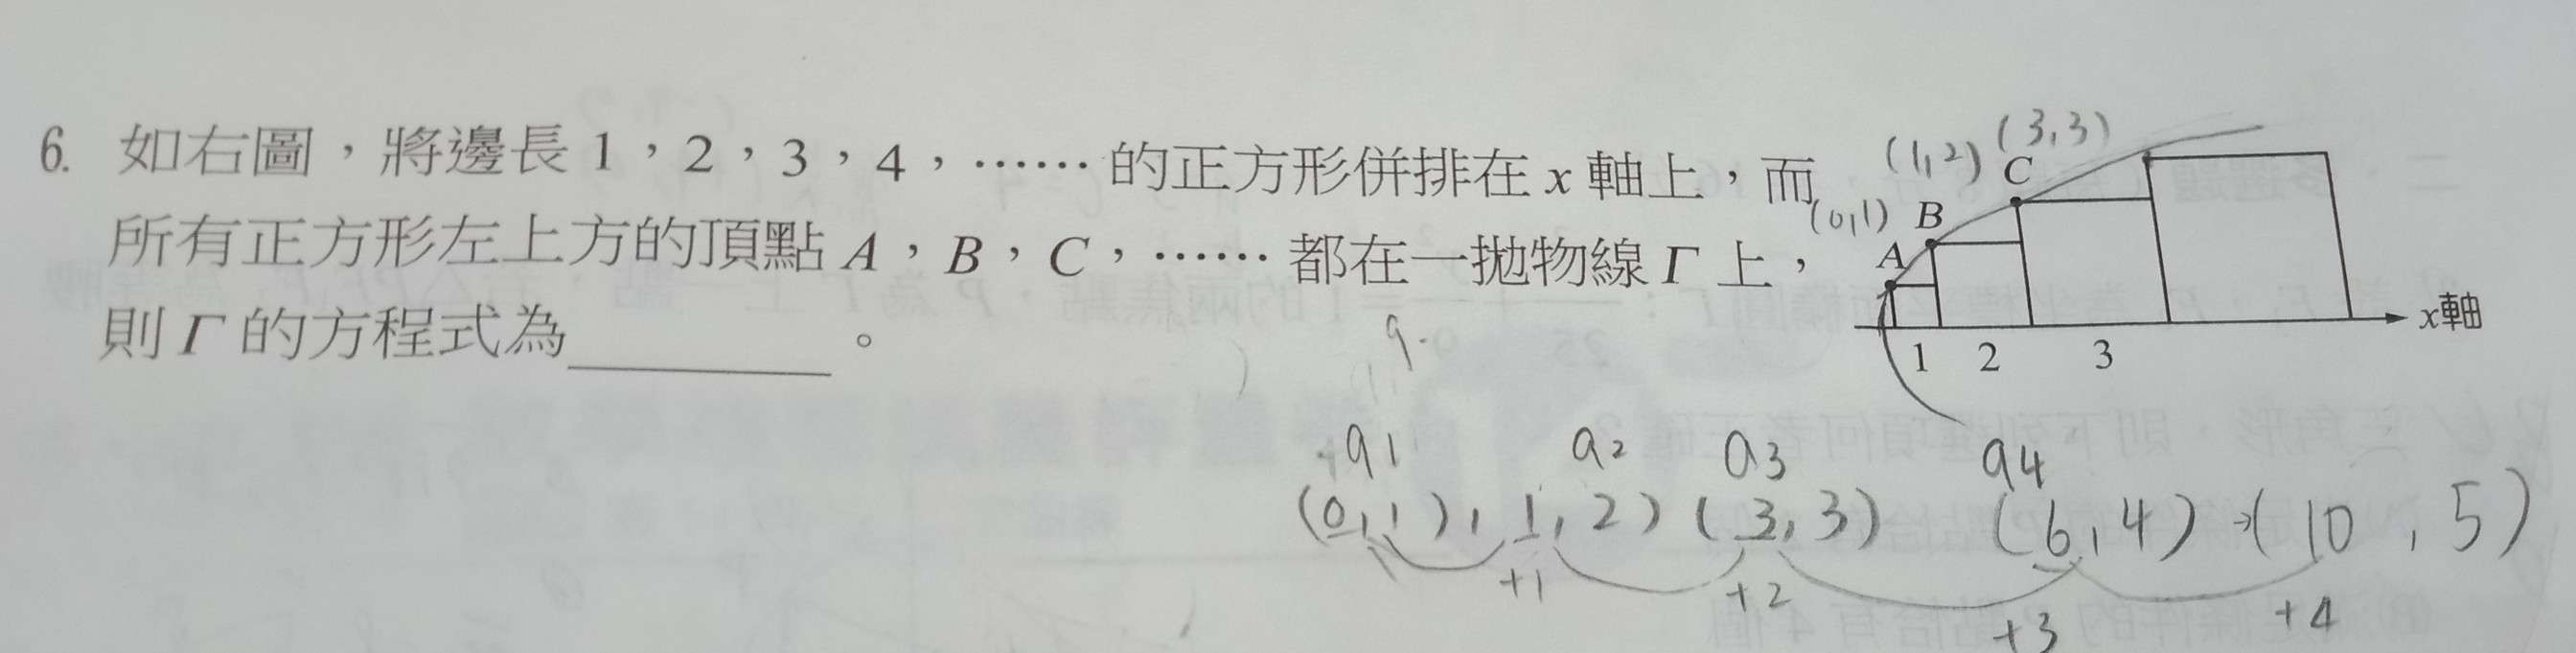 6. 如右圖，將邊長 1，2，3，4，……的正方形併排在 x 軸上，而
所有正方形左上方的頂點 A，B，C，……都在一拋物線 Γ 上，
則 Γ 的方程式為________。
(0,1) (1,2) (3,3)
A B C
1 2 3 x軸
a1 a2 a3 a4
(0,1), 1,2) (3,3) (6,4) → (10,5)
+1 +2 +3 +4